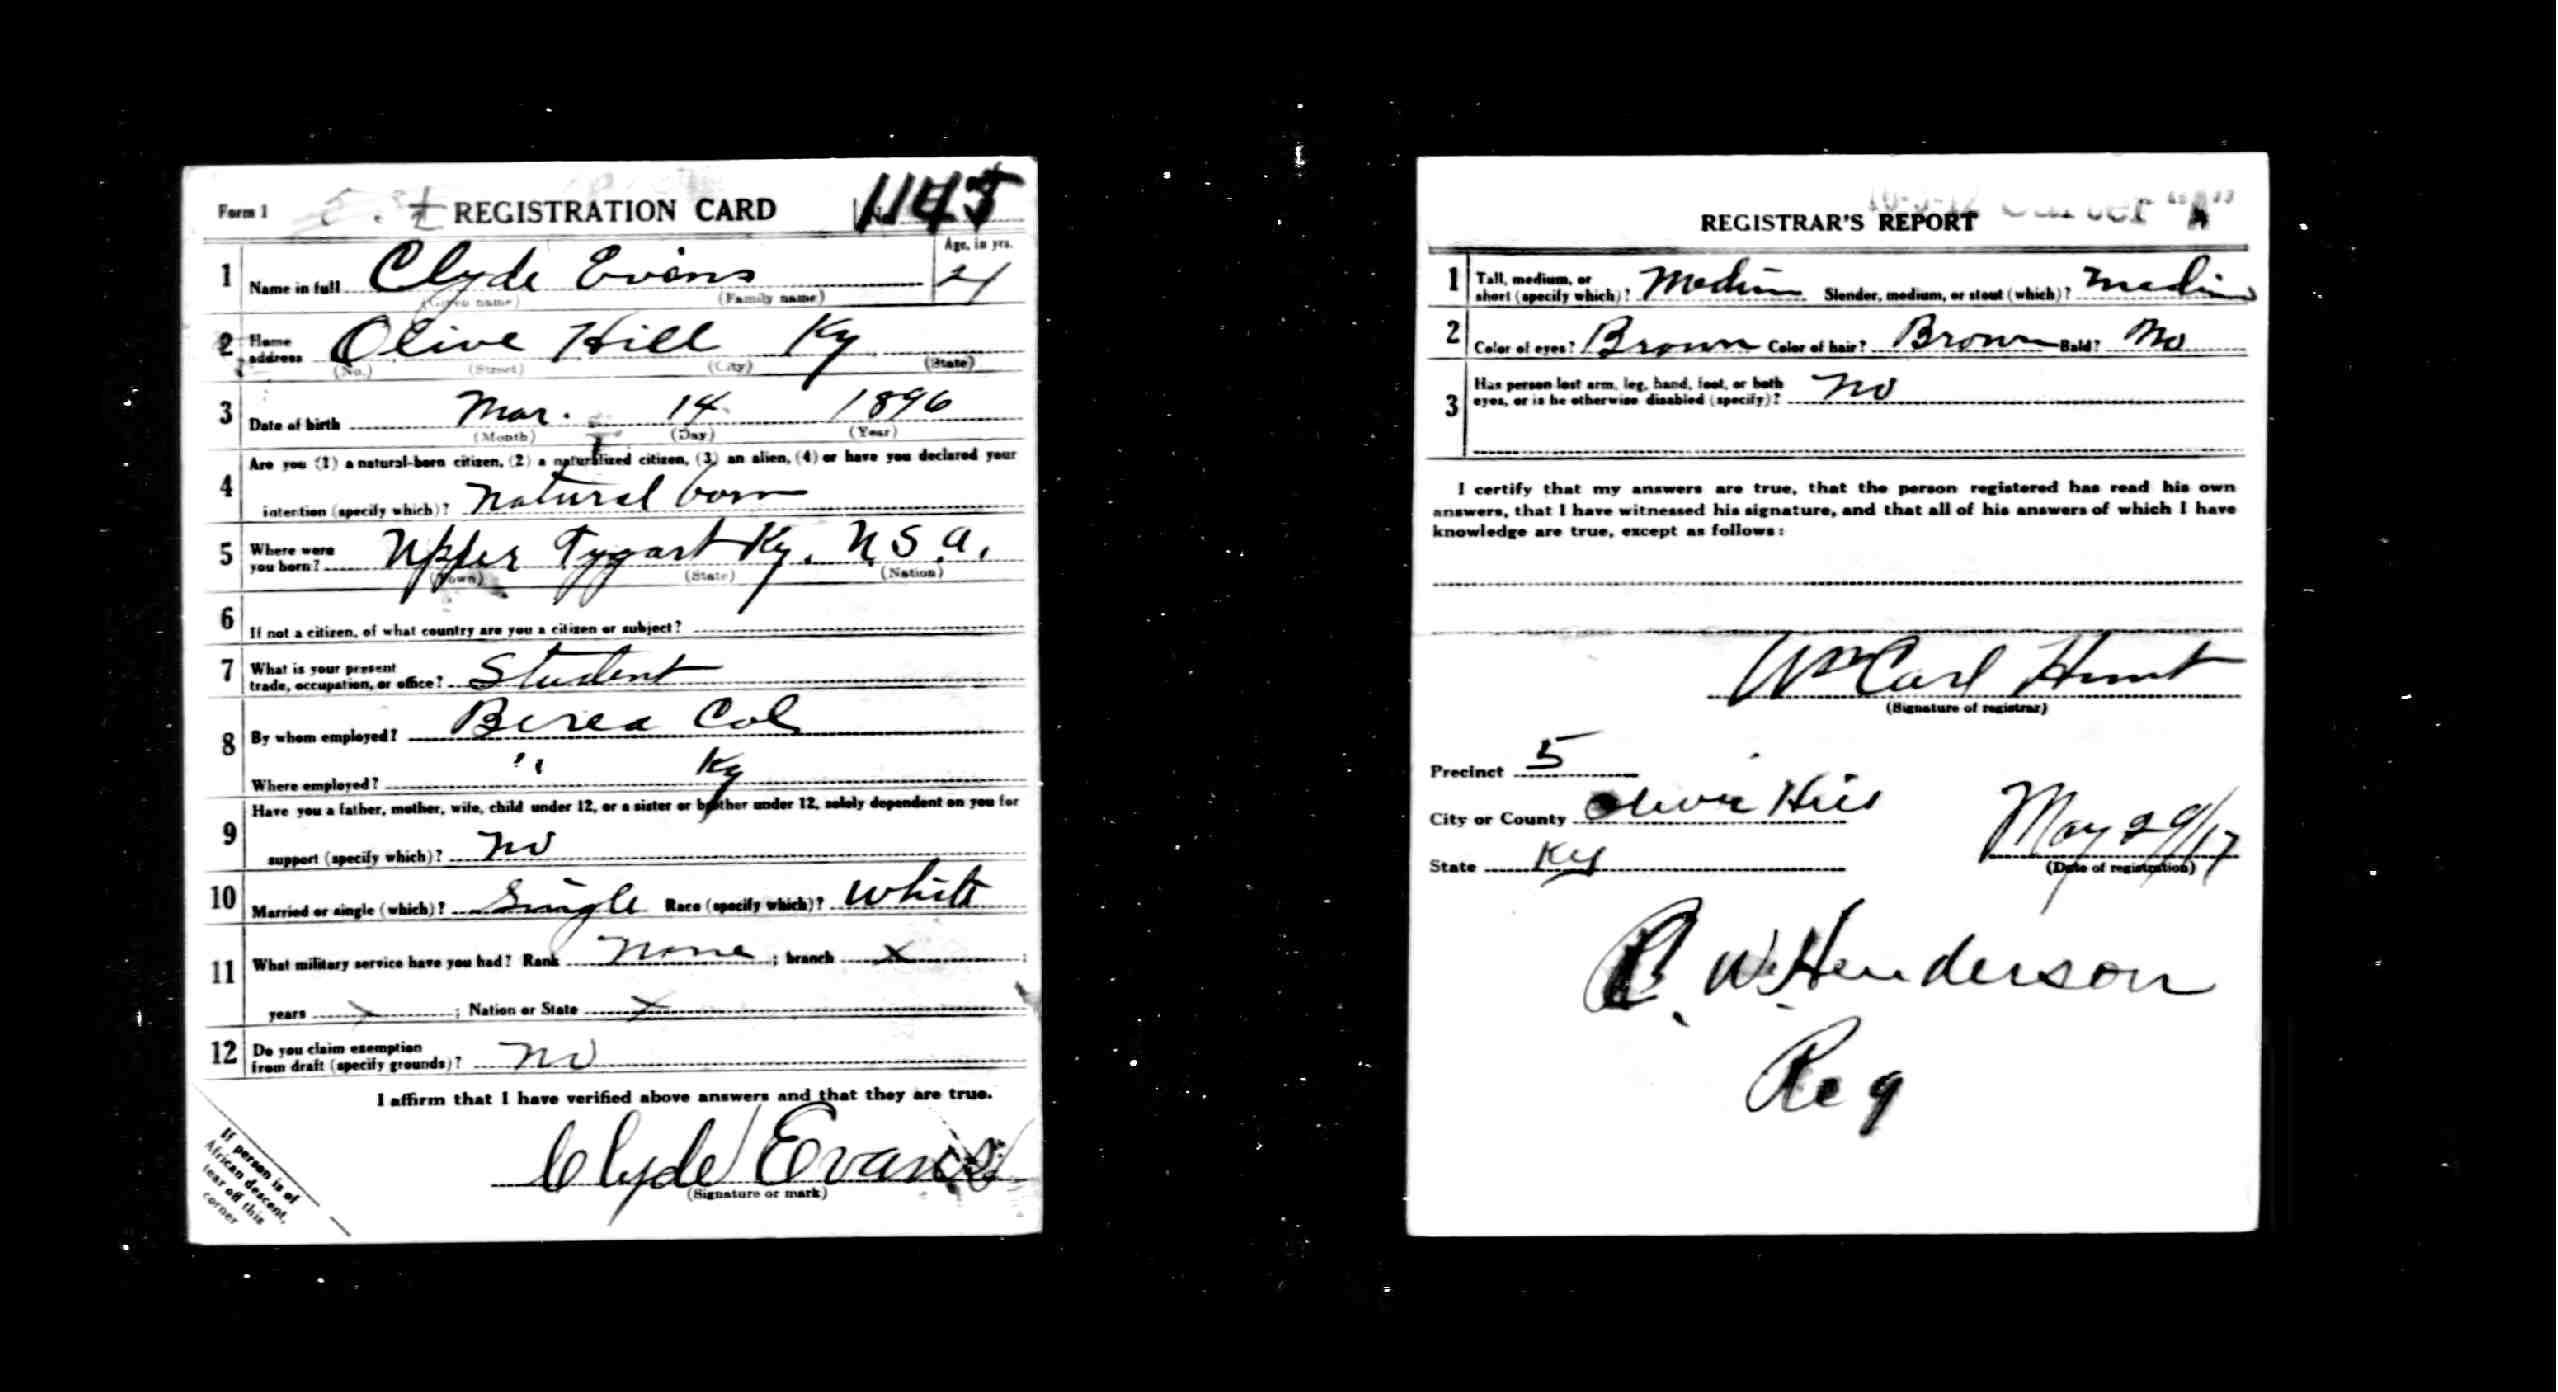 Form 1 REGISTRATION CARD No. 1145
1 Name in full Clyde Evans Age, in yrs. 21
(Given name) (Family name)
2 Home address Olive Hill Ky
(No.) (Street) (City) (State)
3 Date of birth Mar. 14 1896
(Month) (Day) (Year)
4 Are you (1) a natural-born citizen, (2) a naturalized citizen, (3) an alien, (4) or have you declared your
intention (specify which)? Natural born
5 Where were you born? Upper Tygart Ky. U.S.A.
(Town) (State) (Nation)
6 If not a citizen, of what country are you a citizen or subject?
7 What is your present trade, occupation, or office? Student
8 By whom employed? Berea Col
Where employed? " Ky
9 Have you a father, mother, wife, child under 12, or a sister or brother under 12, solely dependent on you for
support (specify which)? No
10 Married or single (which)? Single Race (specify which)? White
11 What military service have you had? Rank None ; branch x ;
years x ; Nation or State x
12 Do you claim exemption from draft (specify grounds)? No
I affirm that I have verified above answers and that they are true.
Clyde Evans
(Signature or mark)
If person is of
African descent,
tear off this
corner
REGISTRAR'S REPORT
1 Tall, medium, or short (specify which)? Medium Slender, medium, or stout (which)? Medium
2 Color of eyes? Brown Color of hair? Brown Bald? No
3 Has person lost arm, leg, hand, foot, or both eyes, or is he otherwise disabled (specify)? No
I certify that my answers are true, that the person registered has read his own
answers, that I have witnessed his signature, and that all of his answers of which I have
knowledge are true, except as follows:
Wm Carl Hunt
(Signature of registrar)
Precinct 5
City or County Olive Hill
State Ky
May 29/17
(Date of registration)
W. Henderson
Reg